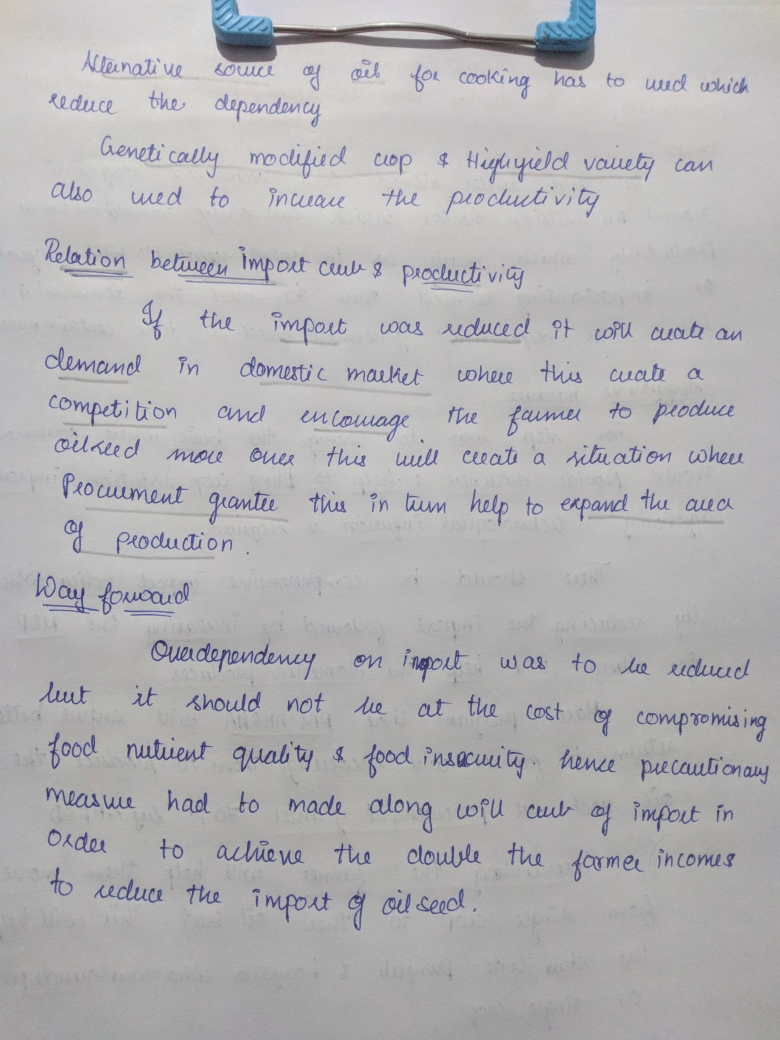 Alternative source of oil for cooking has to used which
reduce the dependency
Genetically modified crop & High yield variety can
also used to increase the productivity
Relation between import curb & productivity
If the import was reduced it will create an
demand in domestic market where this create a
competition and encourage the farmer to produce
oilseed more over this will create a situation where
Procurement grantee this in turn help to expand the area
of production.
Way forward
Overdependency on import was to be reduced
but it should not be at the cost of compromising
food nutrient quality & food insecurity hence precautionary
measure had to made along will curb of import in
order to achieve the double the farmer incomes
to reduce the import of oil seed.